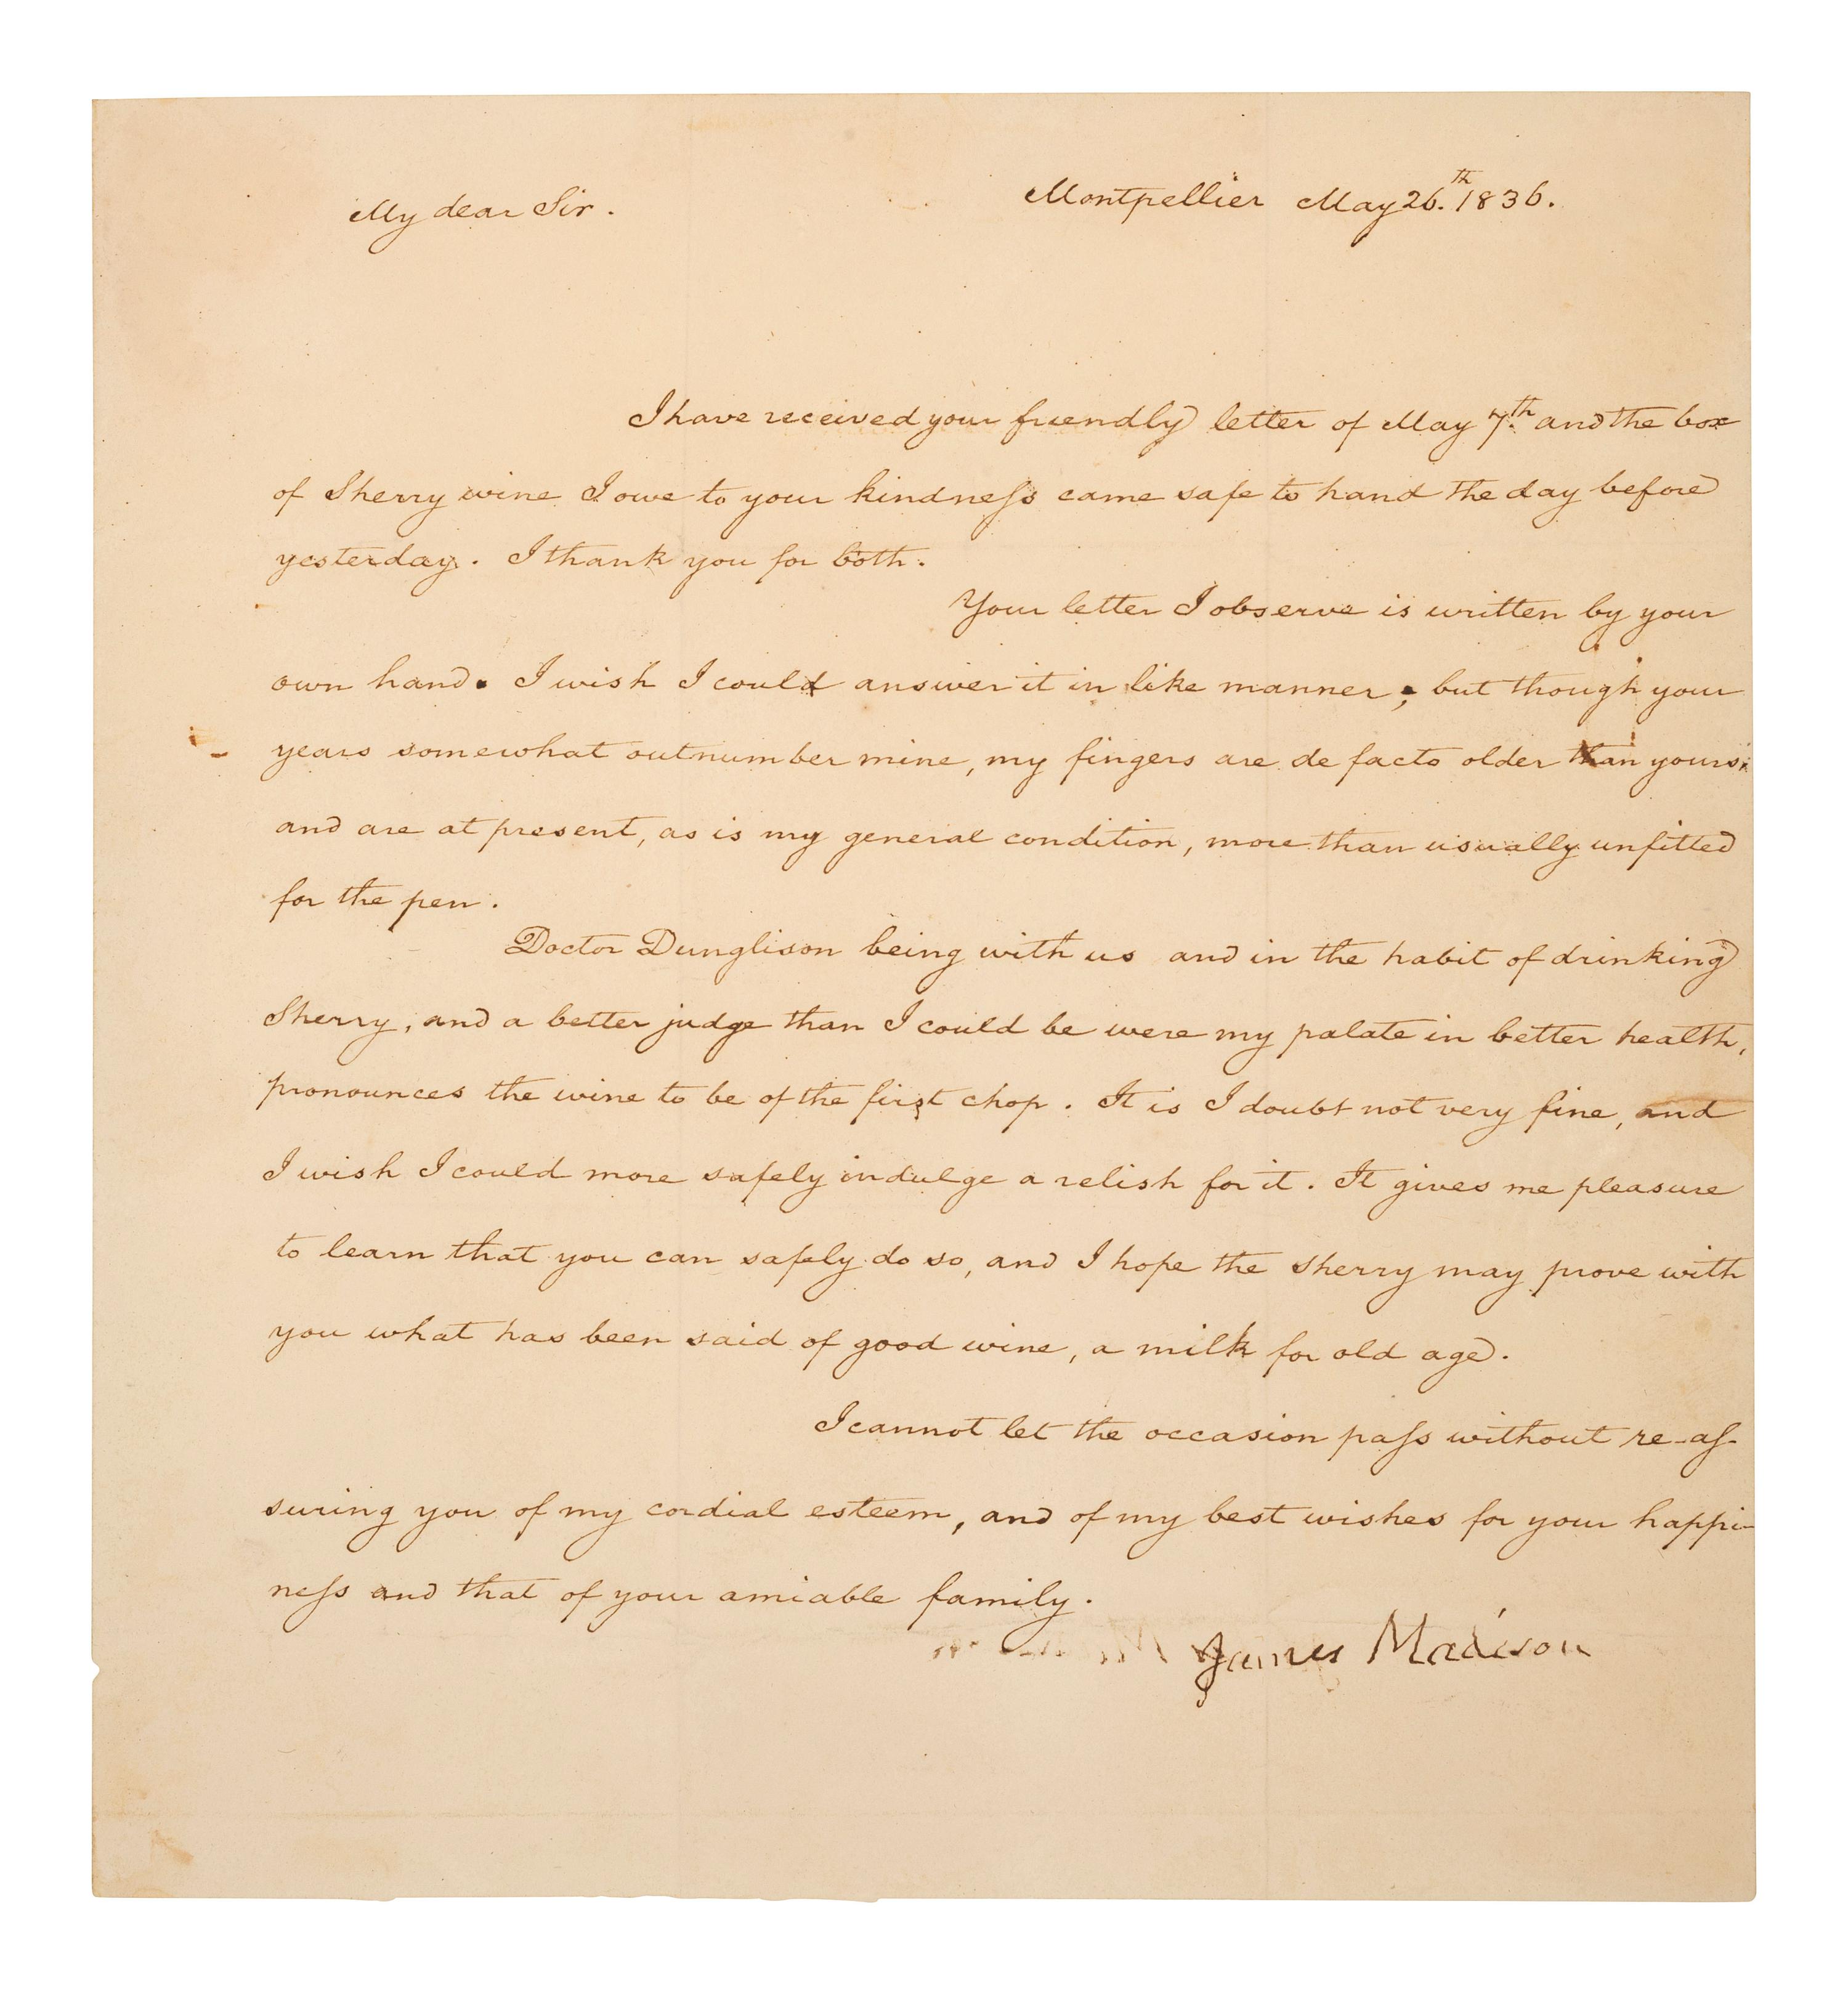 Montpellier May 26.th 1836.
My dear Sir.
I have received your friendly letter of May 7.th and the box
of Sherry wine I owe to your kindneſs came safe to hand the day before
yesterday. I thank you for both.
Your letter I observe is written by your
own hand. I wish I could answer it in like manner; but though your
years somewhat outnumber mine, my fingers are de facto older than yours;
and are at present, as is my general condition, more than usually unfitted
for the pen.
Doctor Dunglison being with us and in the habit of drinking
Sherry, and a better judge than I could be were my palate in better health,
pronounces the wine to be of the first chop. It is I doubt not very fine, and
I wish I could more safely indulge a relish for it. It gives me pleasure
to learn that you can safely do so, and I hope the Sherry may prove with
you what has been said of good wine, a milk for old age.
I cannot let the occasion paſs without re-aſ-
suring you of my cordial esteem, and of my best wishes for your happi-
neſs and that of your amiable family.
James Madison